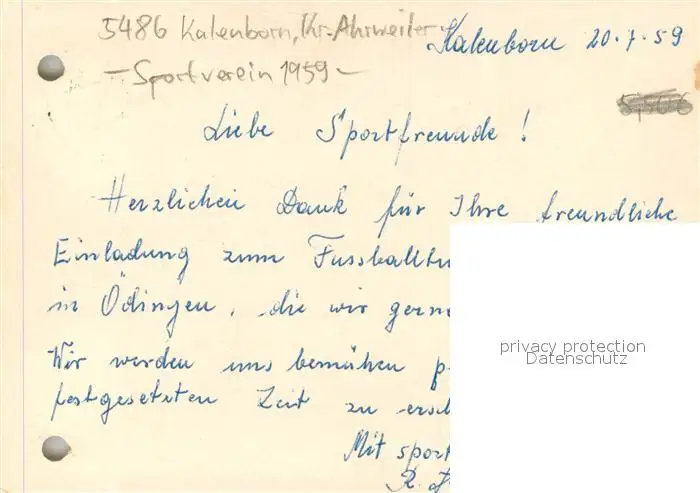 5486 Kalenborn, Kr. Ahrweiler
- Sportverein 1959 -
Kalenborn 20.7.59
Liebe Sportfreunde!
Herzlichen Dank für Ihre freundliche
Einladung zum
in Ödingen, die wir
Wir werden uns bemühen
festgesetzten Zeit zu
Mit
privacy protection
Datenschutz